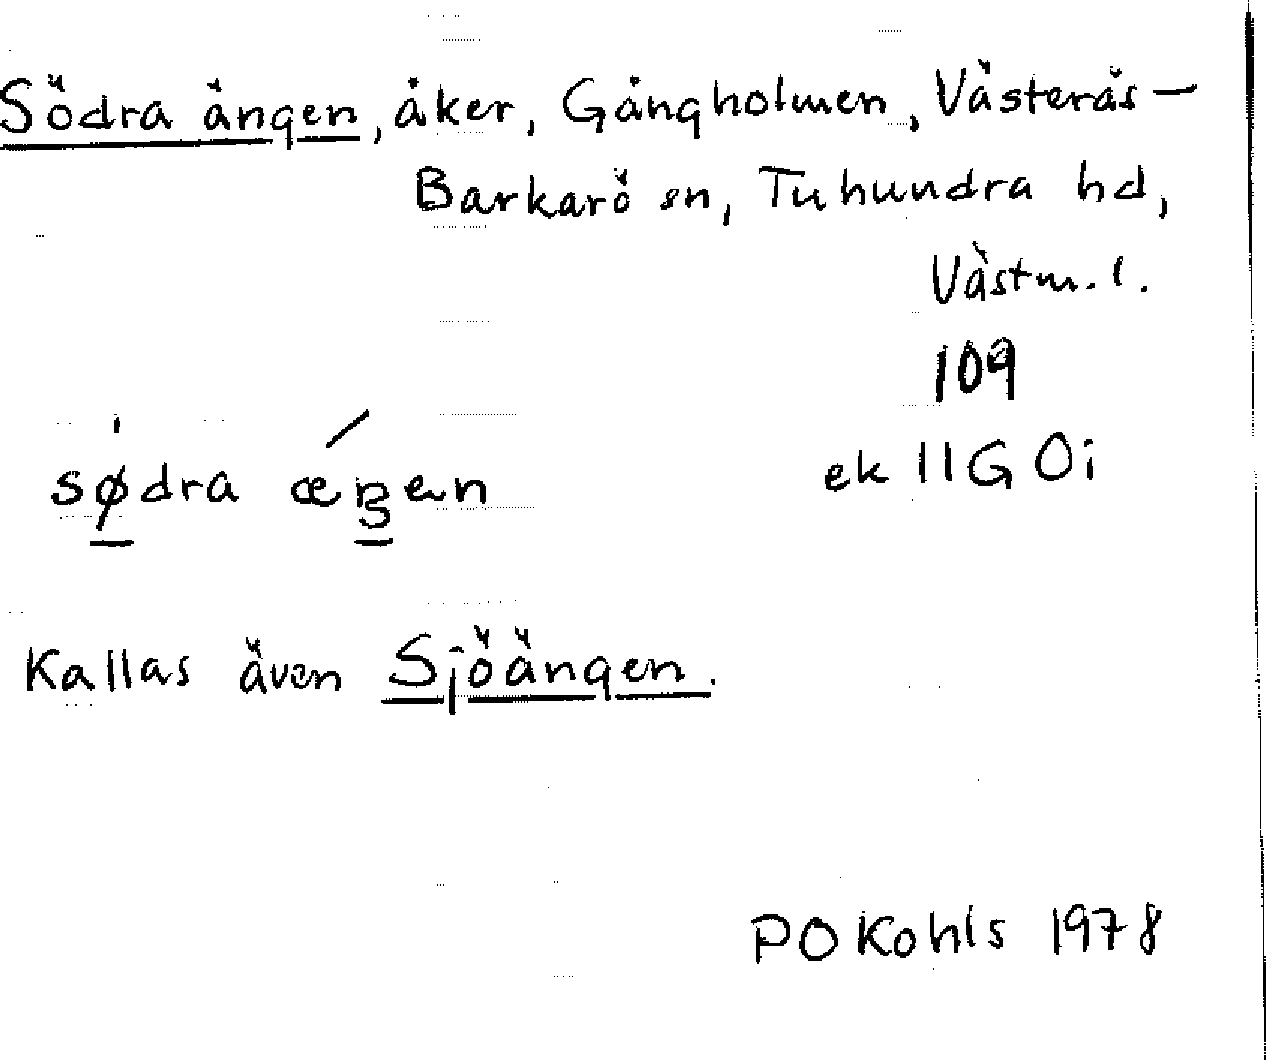 Södra ängen, åker, Gångholmen, Västerås-
Barkarö sn, Tuhundra hd,
Västm. l.
109
ek 11G 0i
södra
Kallas även Sjöängen.
PO Kohls 1978